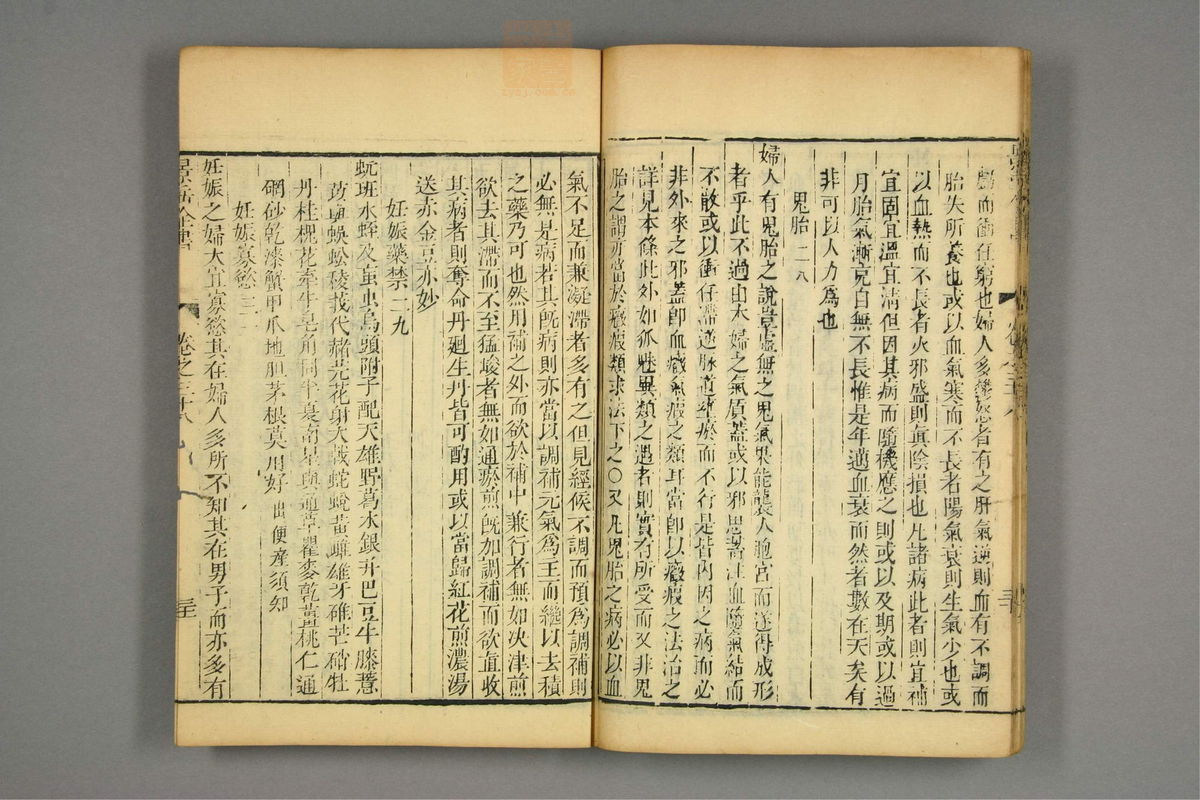 臟而衝任窮也婦人多鬱怒者有之肝氣逆則血有不調而
胎失所養也或以血氣寒而不長者陽氣衰則生氣少也或
以血熱而不長者火邪盛則眞陰損也凡諸病此者則宜補
宜固宜溫宜清但因其病而隨機應之則或以及期或以過
月胎氣漸克自無不長惟是年邁血衰而然者數在天矣有
非可以人力爲也
鬼胎 二八
婦人有鬼胎之說豈虛無之鬼氣果能襲人胞宮而遂得成形
者乎此不過由本婦之氣質蓋或以邪思蓄注血隨氣結而
不散或以衝任滯逆脉道壅瘀而不行是皆內因之病而必
非外來之邪蓋卽血癥氣瘕之類耳當卽以癥瘕之法治之
詳見本條此外如狐魅異類之遇者則實有所受而又非鬼
胎之謂亦當於癥瘕類求法下之○又凡鬼胎之病必以血
氣不足而兼凝滯者多有之但見經候不調而預爲調補則
必無是病若其旣病則亦當以調補元氣爲王而繼以去積
之藥乃可也然用補之外而欲於補中兼行者無如决津煎
欲去其滯而不至猛峻者無如通瘀煎旣加調補而欲直收
其病者則奪命丹廻生丹皆可酌用或以當歸紅花煎濃湯
送赤金豆亦妙
妊娠藥禁二九
蚖班水蛭及䖟虫烏頭附子配天雄野葛水銀并巴豆牛膝薏
苡與蜈蚣稜莪代赭芫花射大戟蛇蛻黃雌雄牙硝芒硝牡
丹桂槐花牽牛皂角同半夏南星與通草瞿麥乾薑桃仁通
硇砂乾漆蟹甲爪地胆茅根莫用好 出便產須知
妊娠寡慾三
妊娠之婦大宜寡慾其在婦人多所不知其在男子而亦多有
景岳全書
卷之三十八
三十